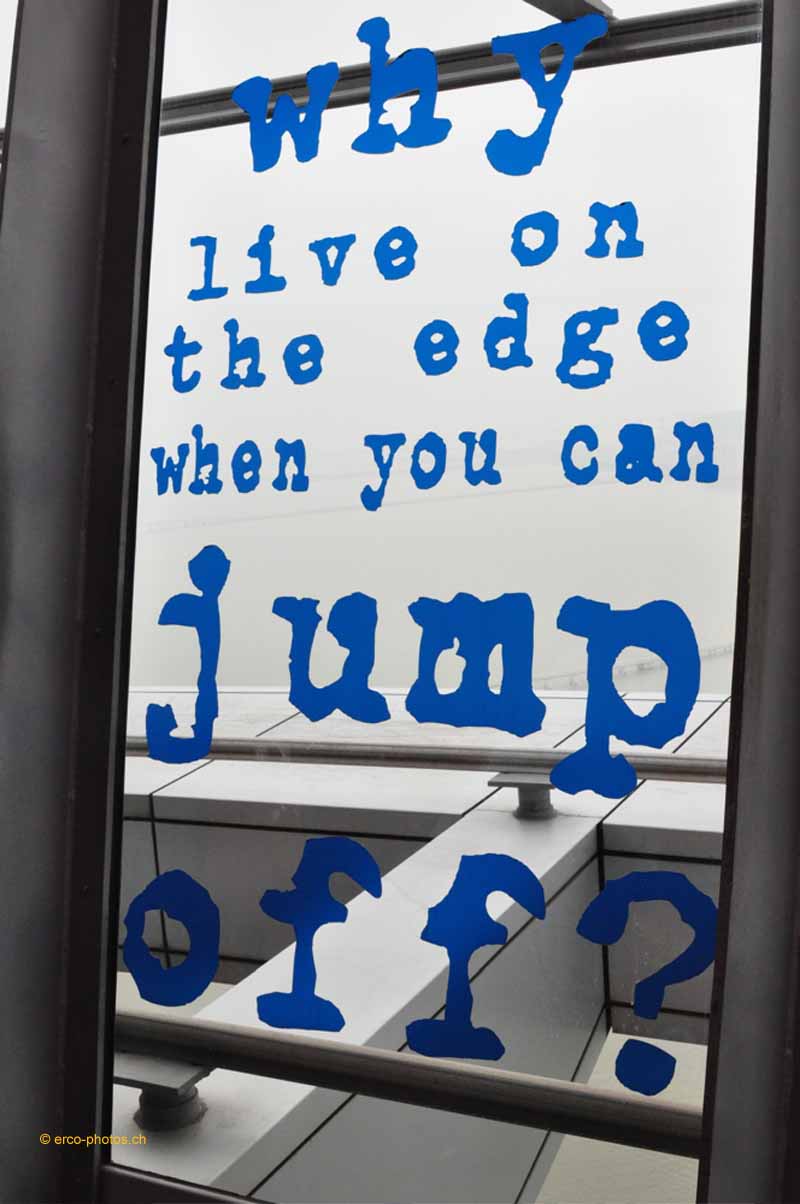 why
live on
the edge
when you can
jump
off?
© erco-photos.ch